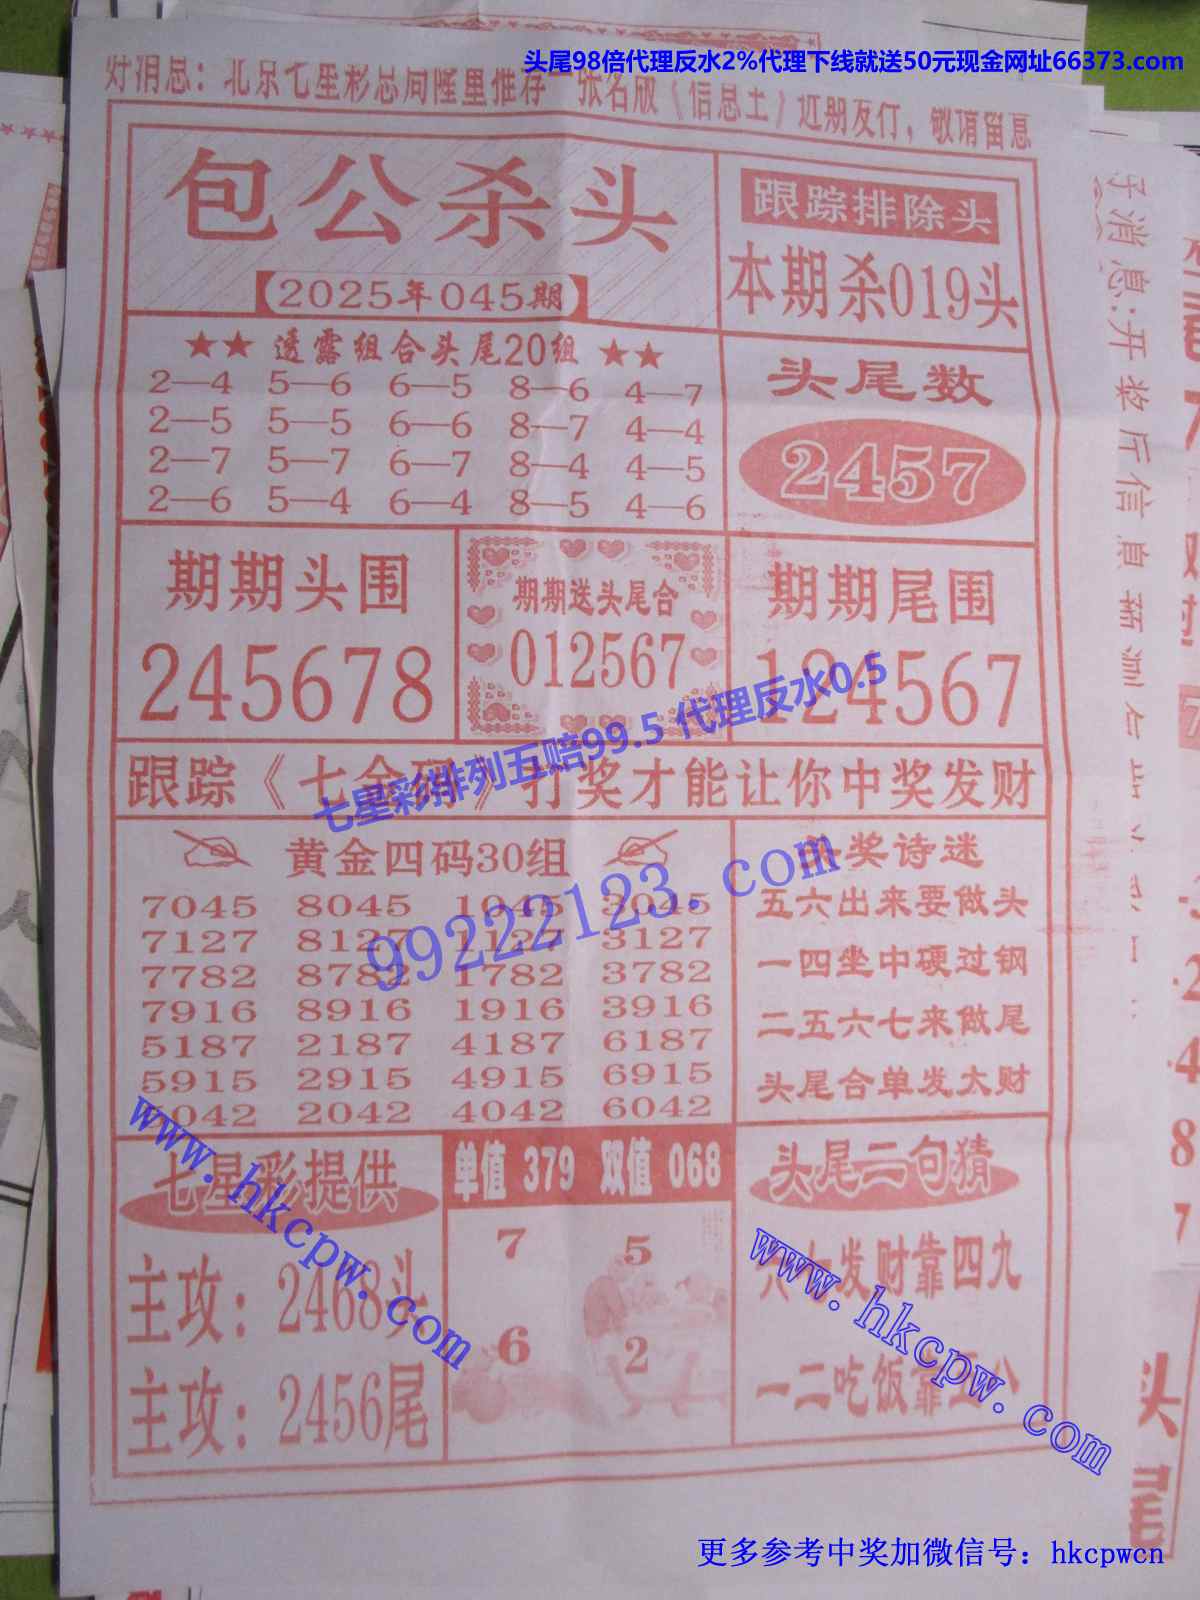 头尾98倍代理反水2%代理下线就送50元现金网址66373.com
好消息：北京七星彩总局隆重推荐一张名版《信息王》近期发行，敬请留意
包公杀头
【2025年045期】
跟踪排除头
本期杀019头
★★ 透露组合头尾20组 ★★
2—4 5—6 6—5 8—6 4—7
2—5 5—5 6—6 8—7 4—4
2—7 5—7 6—7 8—4 4—5
2—6 5—4 6—4 8—5 4—6
头尾数
2457
期期头围
245678
期期送头尾合
012567
期期尾围
124567
七星彩排列五赔99.5 代理反水0.5
跟踪《七金码》打奖才能让你中奖发财
黄金四码30组
7045 8045 1045 3045
7127 8127 1127 3127
7782 8782 1782 3782
7916 8916 1916 3916
5187 2187 4187 6187
5915 2915 4915 6915
5042 2042 4042 6042
99222123.com
头奖诗迷
五六出来要做头
一四坐中硬过钢
二五六七来做尾
头尾合单发大财
七星彩提供
主攻：2468头
主攻：2456尾
www.hkcpw.com
单值 379 双值 068
7 5
6 2
头尾二句猜
六七发财靠四九
一二吃饭靠公
www.hkcpw.com
更多参考中奖加微信号：hkcpwcn